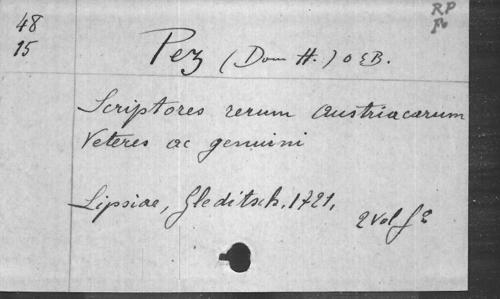 48
15
RP
Pez (Dom H.) O S B.
Scriptores rerum austriacarum
Veteres ac genuini
Lipsiae, Gleditsch, 1721,
2 vol fº